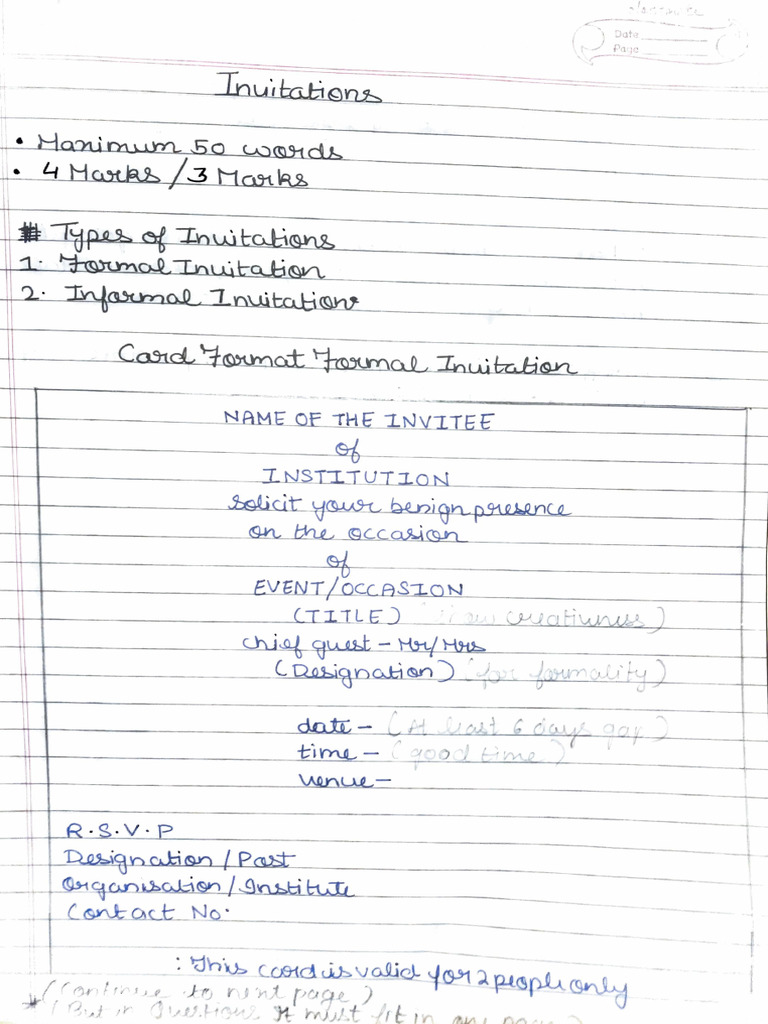 Date
Page
Invitations
• Maximum 50 words
• 4 Marks / 3 Marks
# Types of Invitations
1. Formal Invitation
2. Informal Invitations
Card Format Formal Invitation
NAME OF THE INVITEE
of
INSTITUTION
solicit your benign presence
on the occasion
of
EVENT/OCCASION
(TITLE) ( creativeness)
Chief guest - Mr/Mrs
(Designation) (for formality)
date - (At least 6 days gap)
time - (good time)
venue -
R.S.V.P
Designation / Post
Organisation / Institute
Contact No.
: This card is valid for 2 people only
(Continue to next page)
* (But in Questions It must fit in one page)